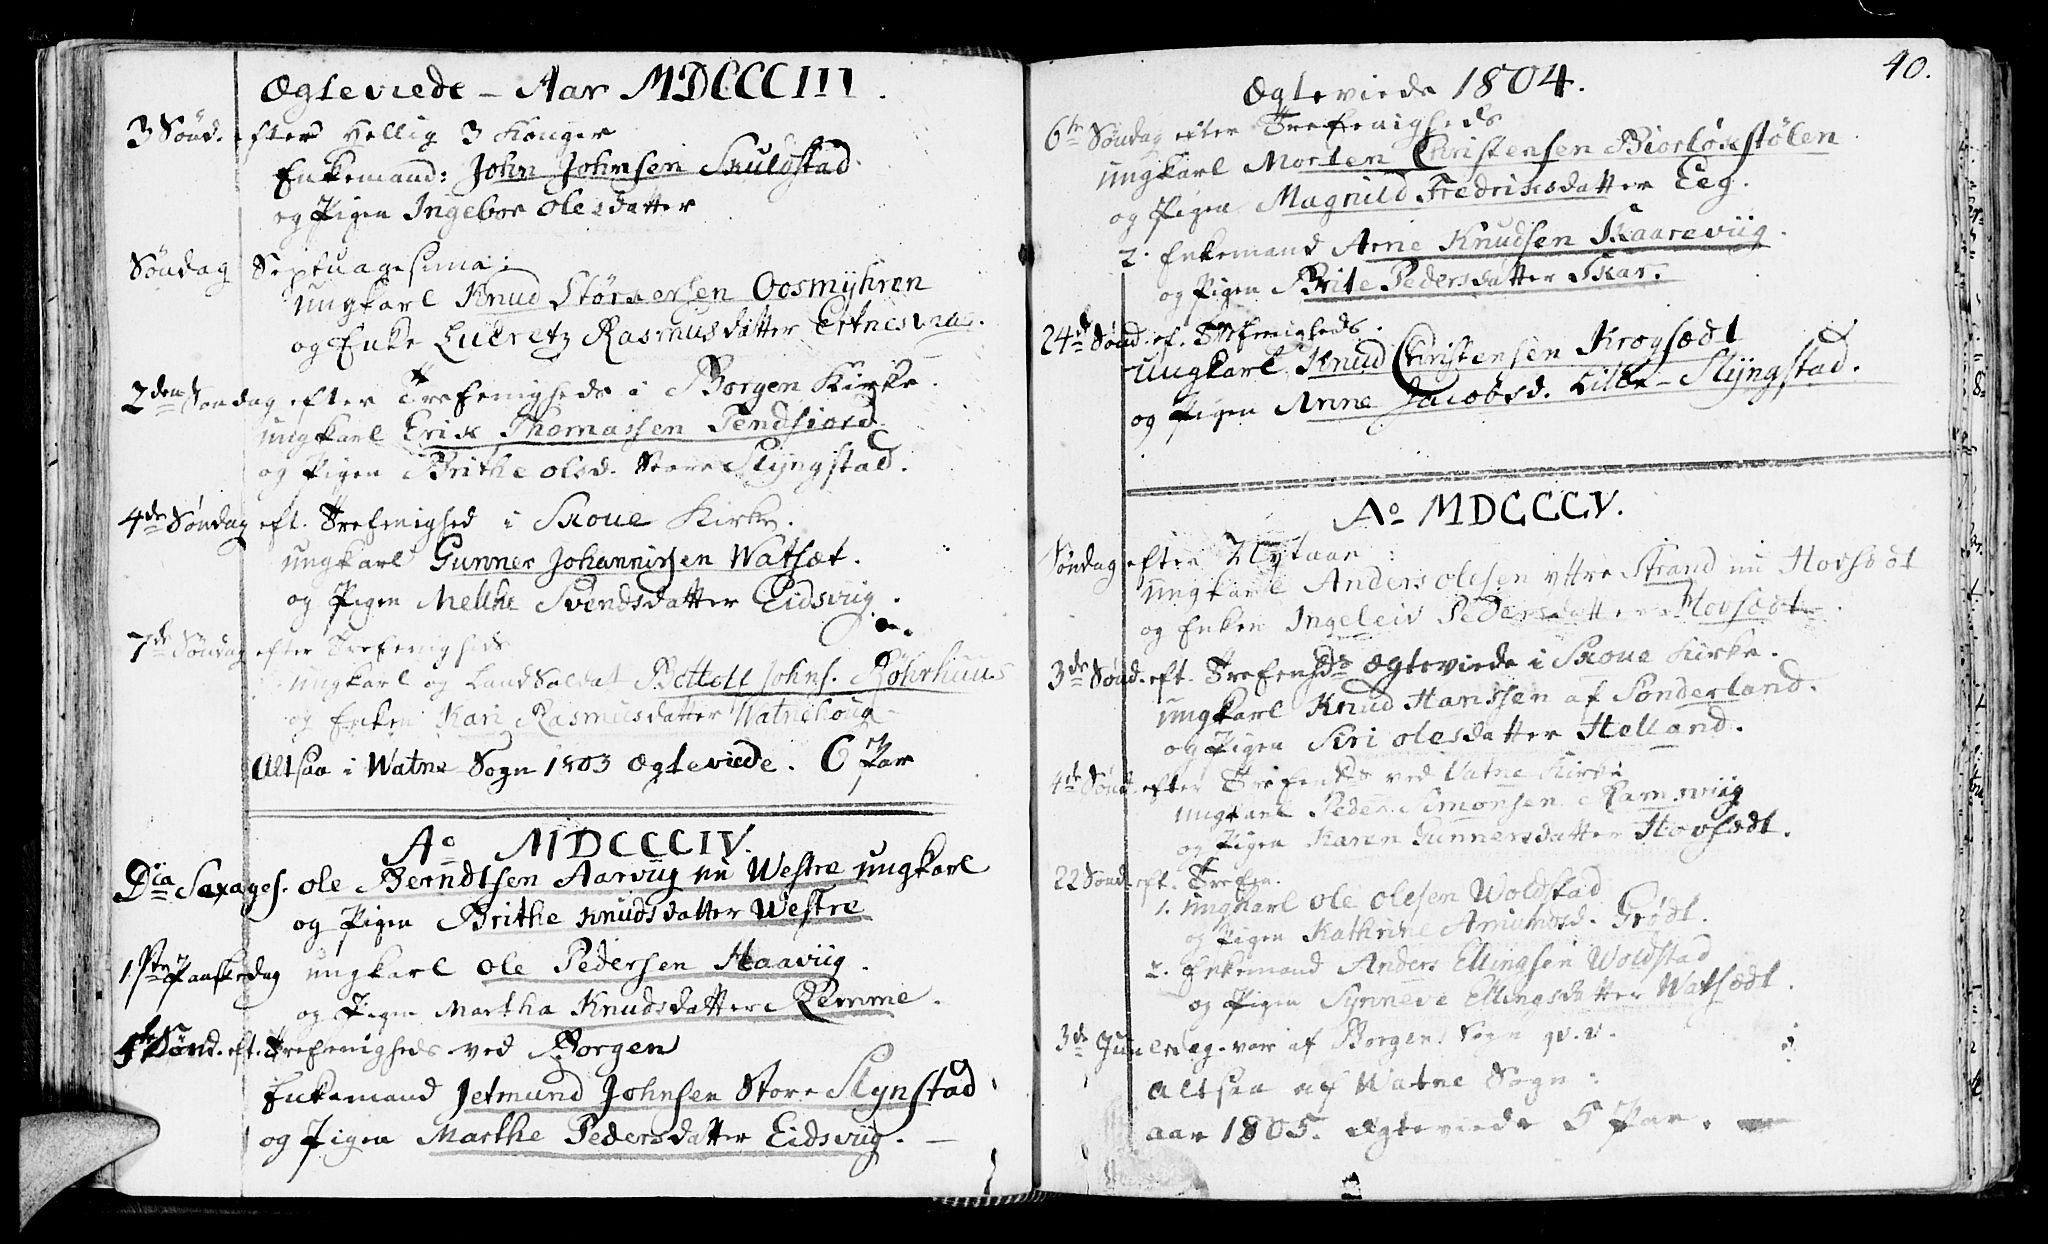 Ægteviede – Aar MDCCCIII.
3 Sønd. efter Hellig 3 Konger
Enkemand: John Johnsen Skulgstad
og Pigen Ingebor Olesdatter
Søndag Septuagesima:
Ungkarl Knud Størkersen Oosmyhren
og Enke Lucretz Rasmusdatter
2den Søndag efter Trefenigheds i Borgen Kirke.
Ungkarl Erik Thomassen Tendfiord
og Pigen Brithe Olsd. Store Slyngstad.
4de Søndag eft. Trefenighed i Skoue Kirke.
Ungkarl Gunner Johannissen Watsæt.
og Pigen Melthe Svendsdatter Eidsviig.
7de Søndag efter Trefenigheds
Ungkarl og Land Saldat Bottolf Johns. Röhrhuus
og Enken Kari Rasmusdatter Watnehoug
Altsaa i Watne Sogn 1803 Ægteviede. 6 Par
Ao MDCCCIV.
Dca Sexages. Ole Berndtsen Aarviig nu Westre ungkarl
og Pigen Brithe Knudsdatter Westre
1ste Paaskedag ungkarl Ole Pedersen Haaviig.
og Pigen Martha Knudsdatter Remme.
Sønd. eft. Trefenigheds ved Borgen
Enkemand Jetmund Johnsen Store Slynstad
og Pigen Marthe Pedersdatter Eidsviig. –
40.
Ægteviede 1804.
6te Søndag efter Trefenigheds
Ungkarl Morten Christensen Biorløkstølen
og Pigen Magnild Fredriksdatter Eeg.
2. Enkemand Arne Knudsen Skaareviig.
og Pigen Brite Pedersdatter Skar.
24de Sønd. ef. Trefenigheds.
Ungkarl Knud Christensen Krogsædt
og Pigen Anne Jacobsd. Lille-Slyngstad.
Ao MDCCCV.
Søndag efter Nytaar:
Ungkarl Anders Olesen yttre Strand nu Hovsædt
og Enken Ingeleiv Pedersdatter Hovsædt.
3de Sønd. eft. Trefends Ægteviede i Skoue Kirke.
Ungkarl Knud Hanssen af Sønderland.
og Pigen Siri Olesdatter Helland.
4de Sønd. efter Trefends ved Vatne Kirke
Ungkarl Peder Simonsen Ramsviig
og Pigen Karen Gunnersdatter Hovsædt.
22 Sønd. eft. Trefen.
1. Ungkarl Ole Olesen Woldstad
og Pigen Kathrine Amundsd. Grødt.
2. Enkemand Anders Ellingsen Woldstad
og Pigen Synneve Ellingsdatter Watsædt.
3de Juuledag. var af Borgens Sogn qv. v.
Altsaa af Watne Sogn:
aar 1805. Ægteviede 5 Par.